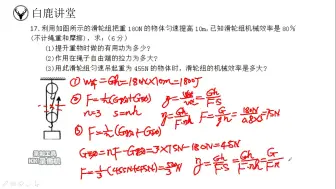 白鹿讲堂
17.利用如图所示的滑轮组把重180N的物体匀速提高10m,已知滑轮组机械效率是80%
(不计绳重和摩擦),求:(6分)
(1)提升重物时做的有用功为多少?
(2)作用在绳子自由端的拉力为多大?
(3)用此滑轮组匀速吊起重为455N的物体时,滑轮组的机械效率是多大?
① W有=Gh=180N×10m=1800J
② F=1/n(G物+G动) η=W有/W总=Gh/FS
n=3 S=nh η=Gh/Fnh F=G/ηn=180N/0.8×3=75N
③ F=1/n(G物+G动)
G动=nF-G物=3×75N-180N=45N
F=1/3(455N+45N)=500/3N η=Gh/FS=Gh/Fnh=G/Fn